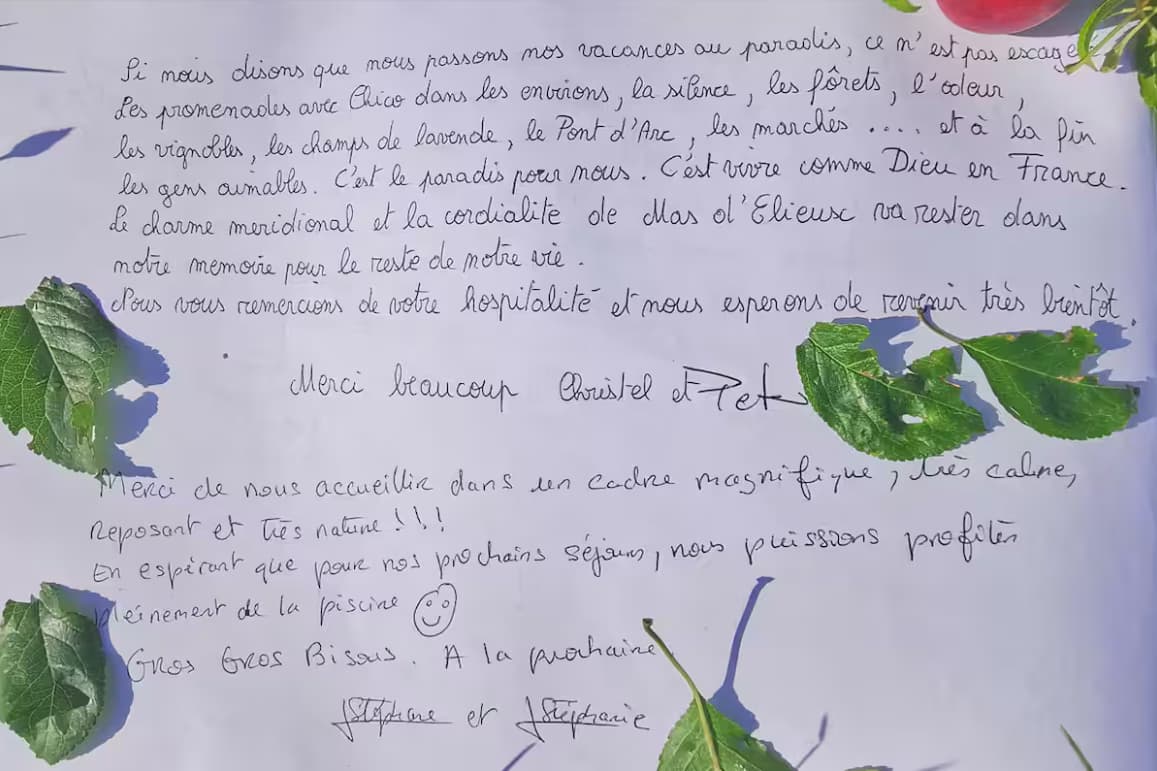 Si nous disons que nous passons nos vacances au paradis, ce n'est pas exage
Les promenades avec Chico dans les environs, la silence, les fôrets, l'odeur,
les vignobles, les champs de lavende, le Pont d'Arc, les marchés .... et à la fin
les gens aimables. C'est le paradis pour nous. C'est vivre comme Dieu en France.
Le charme meridional et la cordialite de Mas d'Elieux va rester dans
notre memoire pour le reste de notre vie.
Nous vous remercions de votre hospitalité et nous esperons de revenir très bientôt.
Merci beaucoup Christel et Peter
Merci de nous accueillir dans un cadre magnifique, très calme,
Reposant et très nature !!!
En espérant que pour nos prochains séjours, nous puissions profiter
pleinement de la piscine
Gros Gros Bisous. A la prochaine
Stéphane et Stéphanie